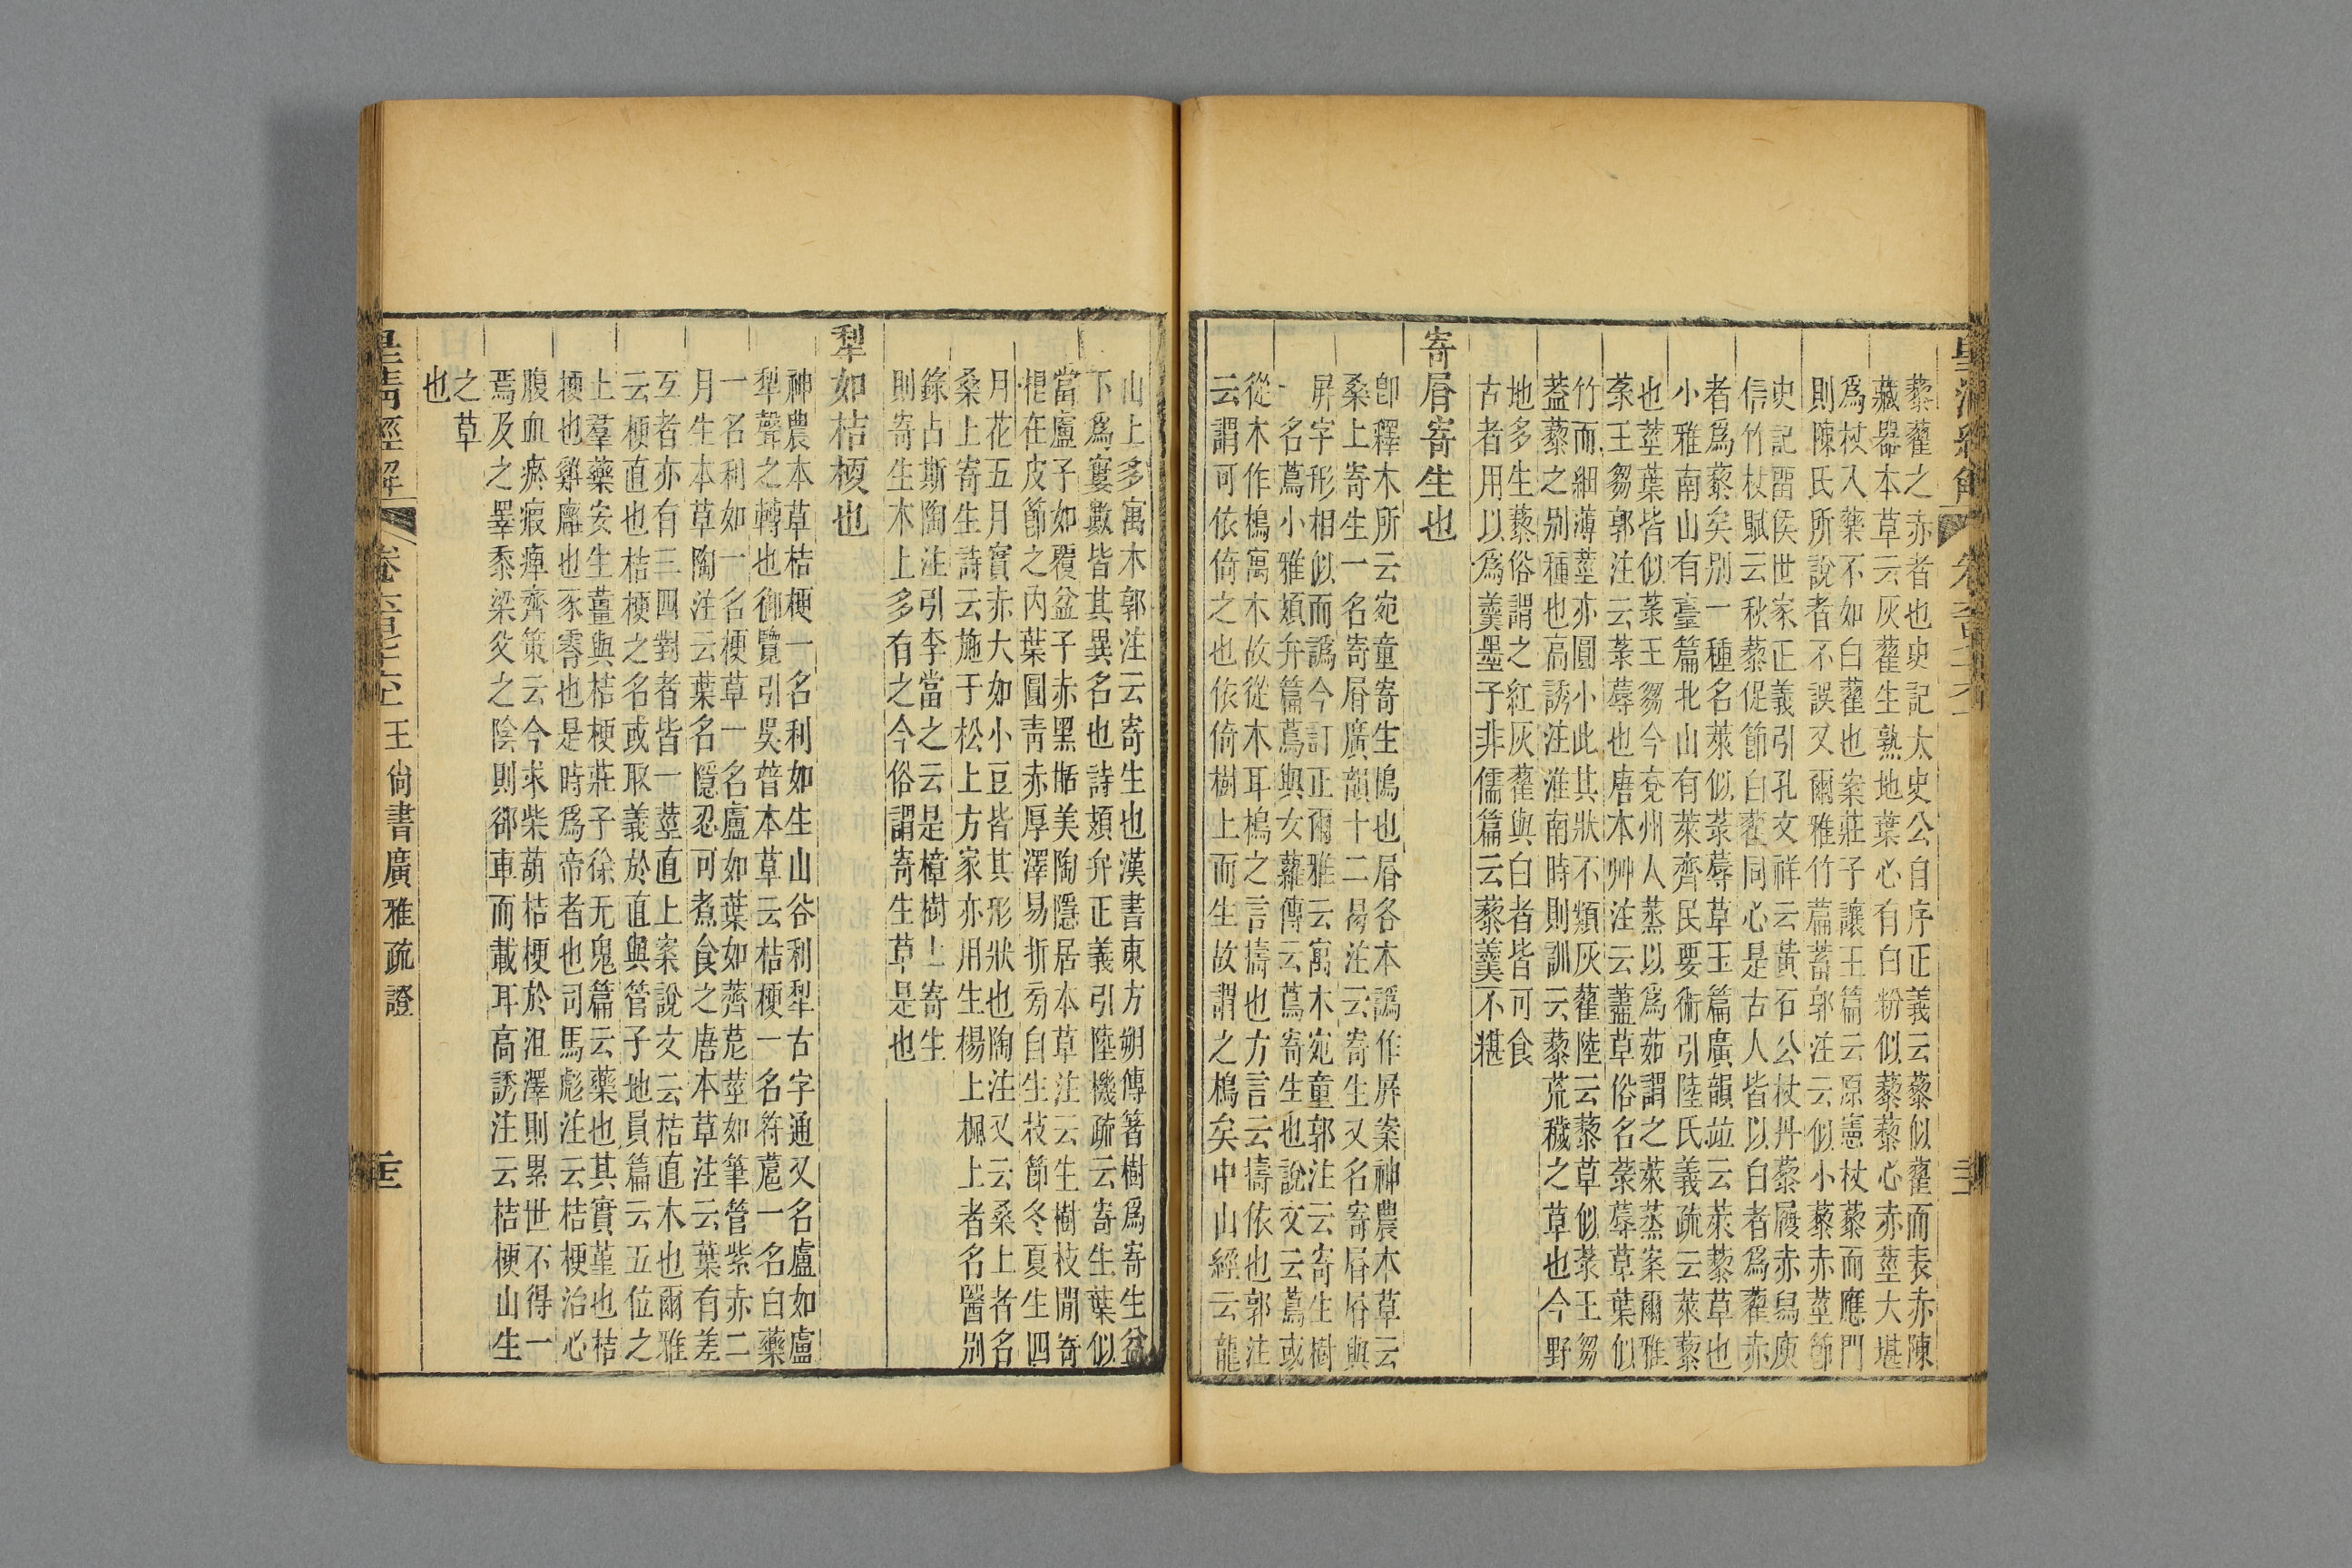 藜藿之赤者也史記太史公自序正義云藜似藿而表赤陳
藏器本草云灰藿生熟地葉心有白粉似藜藜心赤莖大堪
爲杖入藥不如白藿也案莊子讓王篇云原憲杖藜而應門
則陳氏所說者不誤又爾雅竹篇蓄郭注云似小藜赤莖節
史記留侯世家正義引孔文祥云黃石公杖丹藜履赤舄庾
信竹杖賦云秋藜促節白藿同心是古人皆以白者爲藿赤
者爲藜矣别一種名萊似菉蓐草玉篇廣韻竝云萊藜草也
小雅南山有臺篇北山有萊齊民要術引陸氏義疏云萊藜
也莖葉皆似菉王芻今兗州人蒸以爲茹謂之萊蒸案爾雅
菉王芻郭注云菉蓐也唐本艸注云藎草俗名菉蓐草葉似
竹而細薄莖亦圓小此其狀不類灰藿陸云藜草似菉王芻
蓋藜之别種也高誘注淮南時則訓云藜荒穢之草也今野
地多生藜俗謂之紅灰藿與白者皆可食
古者用以爲羹墨子非儒篇云藜羹不糂
寄屑寄生也
卽釋木所云宛童寄生蔦也屑各本譌作屏案神農本草云
桑上寄生一名寄屑廣韻十二曷注云寄生又名寄屑屑與
屏字形相似而譌今訂正爾雅云寓木宛童郭注云寄生樹
一名蔦小雅頍弁篇蔦與女蘿傳云蔦寄生也說文云蔦或
從木作樢寓木故從木耳樢之言擣也方言云擣依也郭注
云謂可依倚之也依倚樹上而生故謂之樢矣中山經云龍
山上多寓木郭注云寄生也漢書東方朔傳箸樹爲寄生盆
下爲寠數皆其異名也詩頍弁正義引陸機疏云寄生葉似
當盧子如覆盆子赤黑恬美陶隱居本草注云生樹枝閒寄
棍在皮節之內葉圓靑赤厚澤易折旁自生枝節冬夏生四
月花五月實赤大如小豆皆其形狀也陶注又云桑上者名
桑上寄生詩云施于松上方家亦用生楊上楓上者名醫别
錄占斯陶注引李當之云是樟樹上寄生
則寄生木上多有之今俗謂寄生草是也
犁如桔梗也
神農本草桔梗一名利如生山谷利犁古字通又名盧如盧
犁聲之轉也御覽引吳普本草云桔梗一名符蔰一名白藥
一名利如一名梗草一名盧如葉如薺苨莖如筆管紫赤二
月生本草陶注云葉名隱忍可煮食之唐本草注云葉有差
互者亦有三四對者皆一莖直上案說文云桔直木也爾雅
云梗直也桔梗之名或取義於直與管子地員篇云五位之
上羣藥安生薑與桔梗莊子徐无鬼篇云藥也其實堇也桔
梗也雞廱也豕零也是時爲帝者也司馬彪注云桔梗治心
腹血瘀瘕痺齊策云今求柴葫桔梗於沮澤則累世不得一
焉及之睪黍梁父之陰則郤車而載耳高誘注云桔梗山生
之草
也
王尙書廣雅疏證